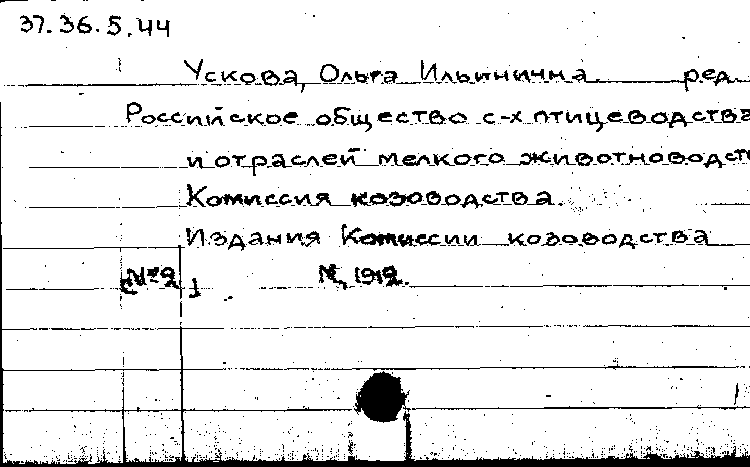 37.36.5.44
Ускова, Ольга Ильинична ред.
Российское общество с-х птицеводства
и отраслей мелкого животноводст
Комиссия козоводства.
Издания Комиссии козоводства
[№2] М, 1912.